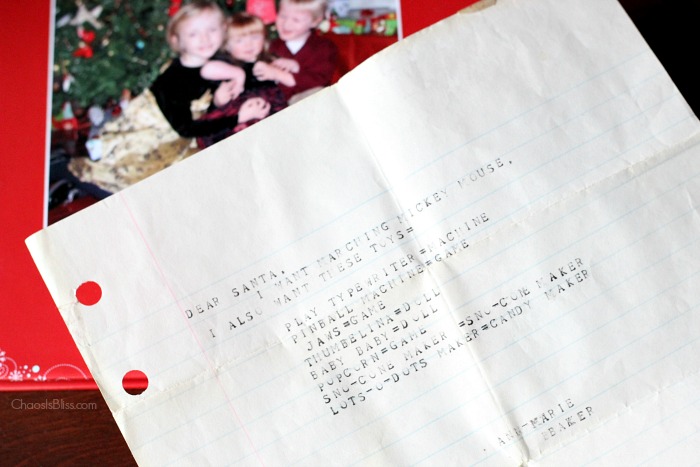 DEAR SANTA,
I WANT MARCHING MICKEY MOUSE.
I ALSO WANT THESE TOYS=
PLAY TYPEWRITER=MACHINE
PINBALL MACHINE=GAME
JAWS=GAME
THUMBELINA=DOLL
BABY BABY=DOLL
POPCORN=GAME
SNO-CONE MAKER =SNO-CONE MAKER
LOTS-O-DOTS MAKER=CANDY MAKER
ANN-MARIE
ChaosIsBliss.com